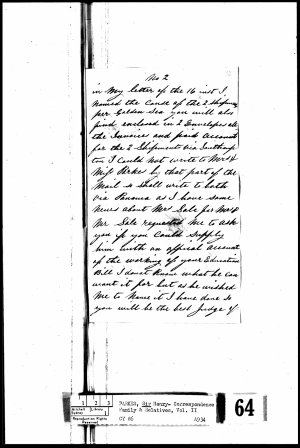 No 2
in My letter of the 16 inst I
named the Cause of the 2 Shipments
per Golden Sea you will also
find enclosed in 2 Envelopes all
the Invoices and paid Accounts
for the 2 Shipments via Southamp
ton I Could not write to Mrs &
Miss Parkes by that part of the
Mail so Shall write to both
via Panama as I have some
News about Mrs Gale for Mrs P
Mr Gale requested Me to ask
you if you Could Supply
him with an official account
of the working of your Education
Bill I donot Know what he can
want it for but as he wished
Me to Name it I have done so
you will be the best Judge of
1 2 3
Mitchell Library
Sydney
Reproduction Rights
Reserved
PARKES, Sir Henry- Correspondence
Family & Relatives, Vol. II
CY 86 A934
64